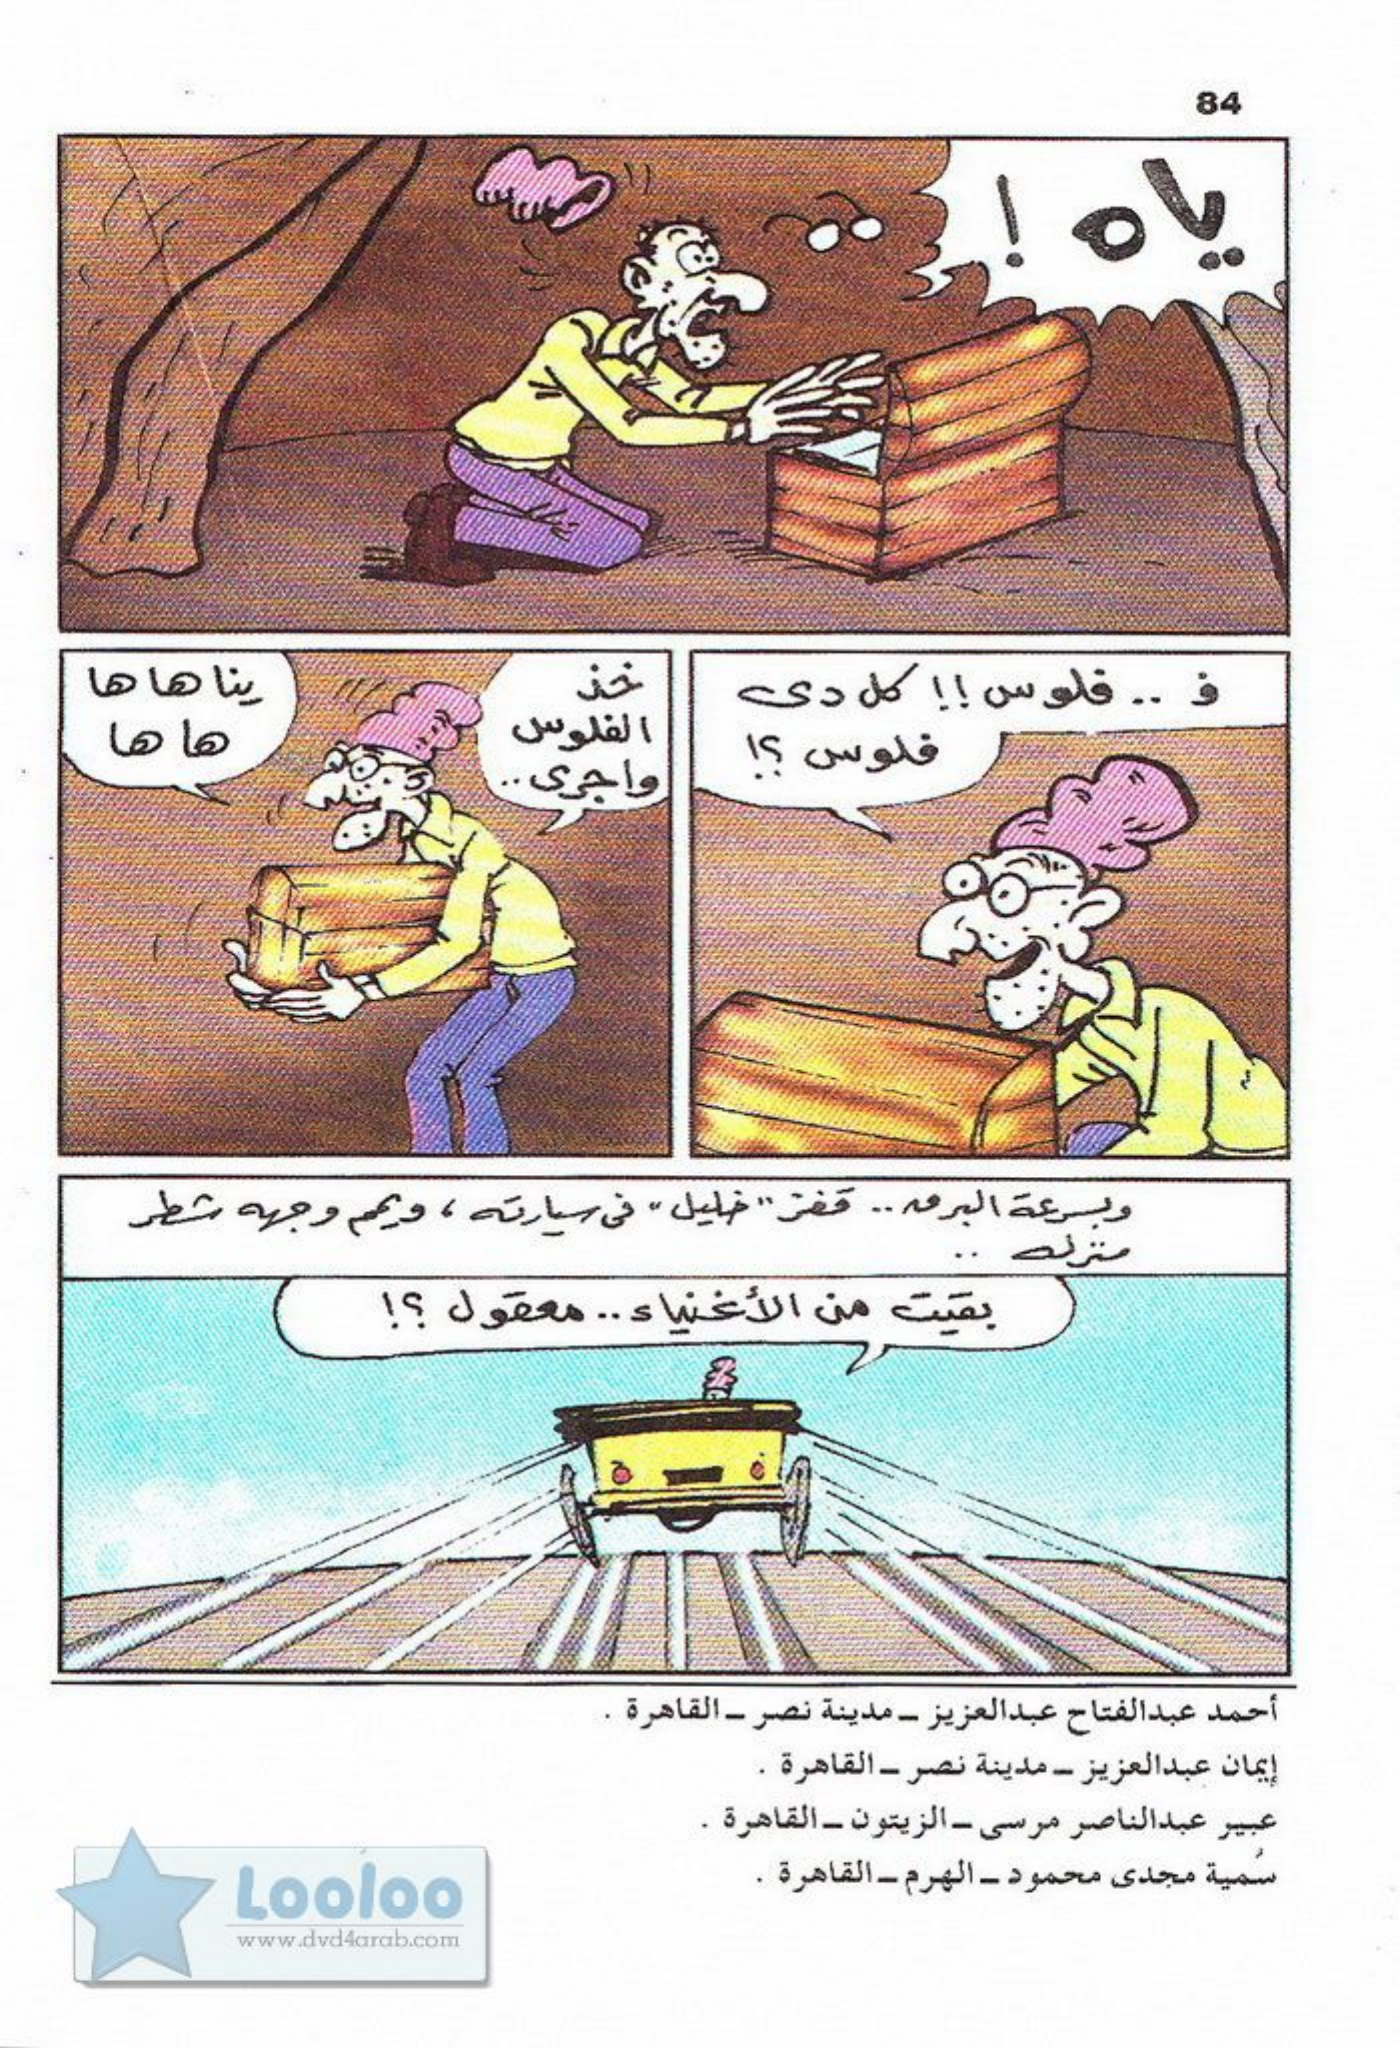 84
ياه !
ف .. فلوس !! كل دى
فلوس ؟!
خذ
الفلوس
واجرى ..
يناهاها
هاها
وبسرعة البرق .. قفز "خليل" فى سيارته ، ويمم وجهه شطر
منزله ..
بقيت من الأغنياء .. معقول ؟!
أحمد عبدالفتاح عبدالعزيز ــ مدينة نصر ــ القاهرة .
إيمان عبدالعزيز ــ مدينة نصر ــ القاهرة .
عبير عبدالناصر مرسى ــ الزيتون ــ القاهرة .
سُمية مجدى محمود ــ الهرم ــ القاهرة .
Looloo
www.dvd4arab.com